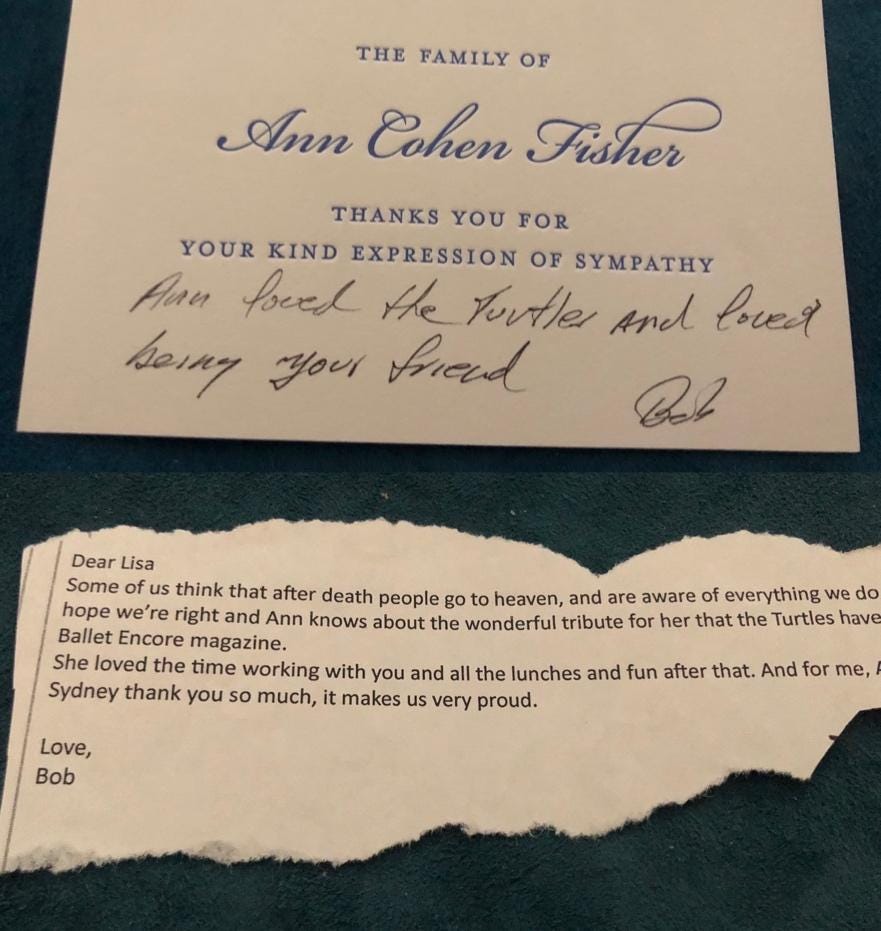 THE FAMILY OF
Ann Cohen Fisher
THANKS YOU FOR
YOUR KIND EXPRESSION OF SYMPATHY
Ann loved the Turtles and loved
being your friend
Bob
Dear Lisa
Some of us think that after death people go to heaven, and are aware of everything we do
hope we're right and Ann knows about the wonderful tribute for her that the Turtles have
Ballet Encore magazine.
She loved the time working with you and all the lunches and fun after that. And for me, A
Sydney thank you so much, it makes us very proud.
Love,
Bob